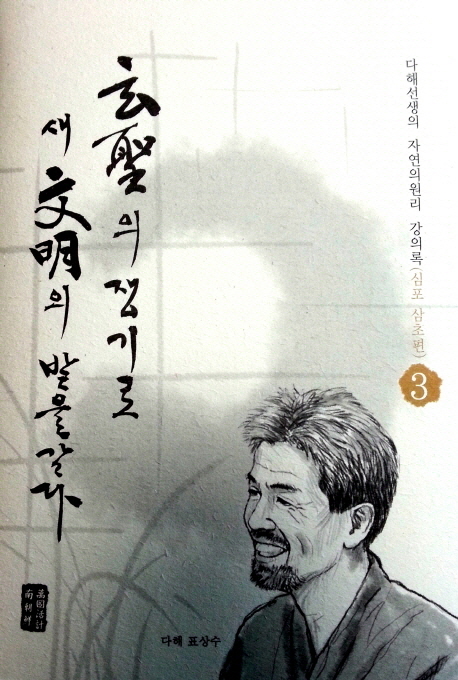 다해선생의 자연의원리 강의록(심포 삼초편)
3
玄聖의 쟁기로
새 文明의 밭을갈다
다해 표상수